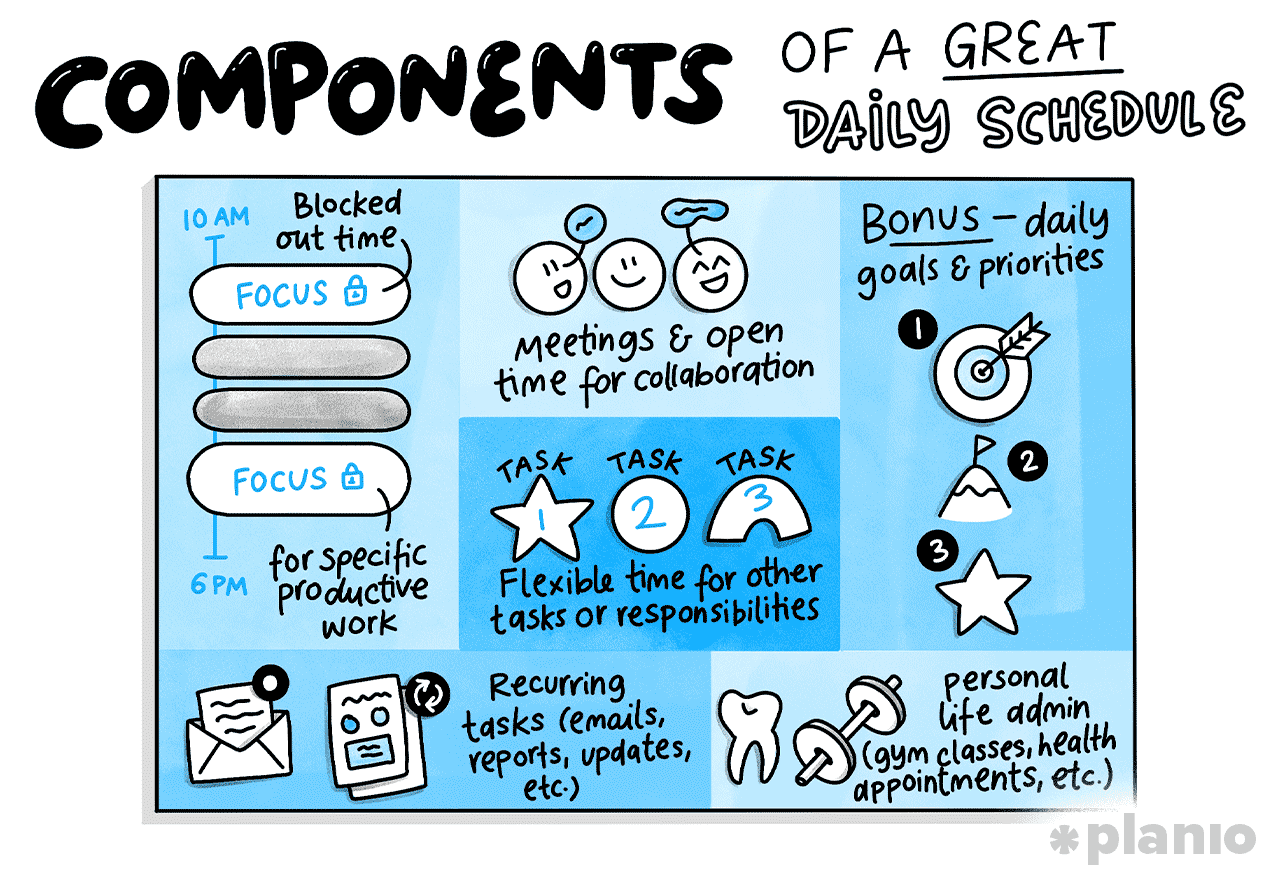 COMPONENTS
OF A GREAT
DAILY SCHEDULE
10 AM
Blocked
out time
FOCUS
FOCUS
6 PM
for specific
productive
work
Meetings & open
time for collaboration
TASK TASK TASK
1 2 3
Flexible time for other
tasks or responsibilities
Bonus – daily
goals & priorities
1
2
3
Recurring
tasks (emails,
reports, updates,
etc.)
personal
life admin
(gym classes, health
appointments, etc.)
planio